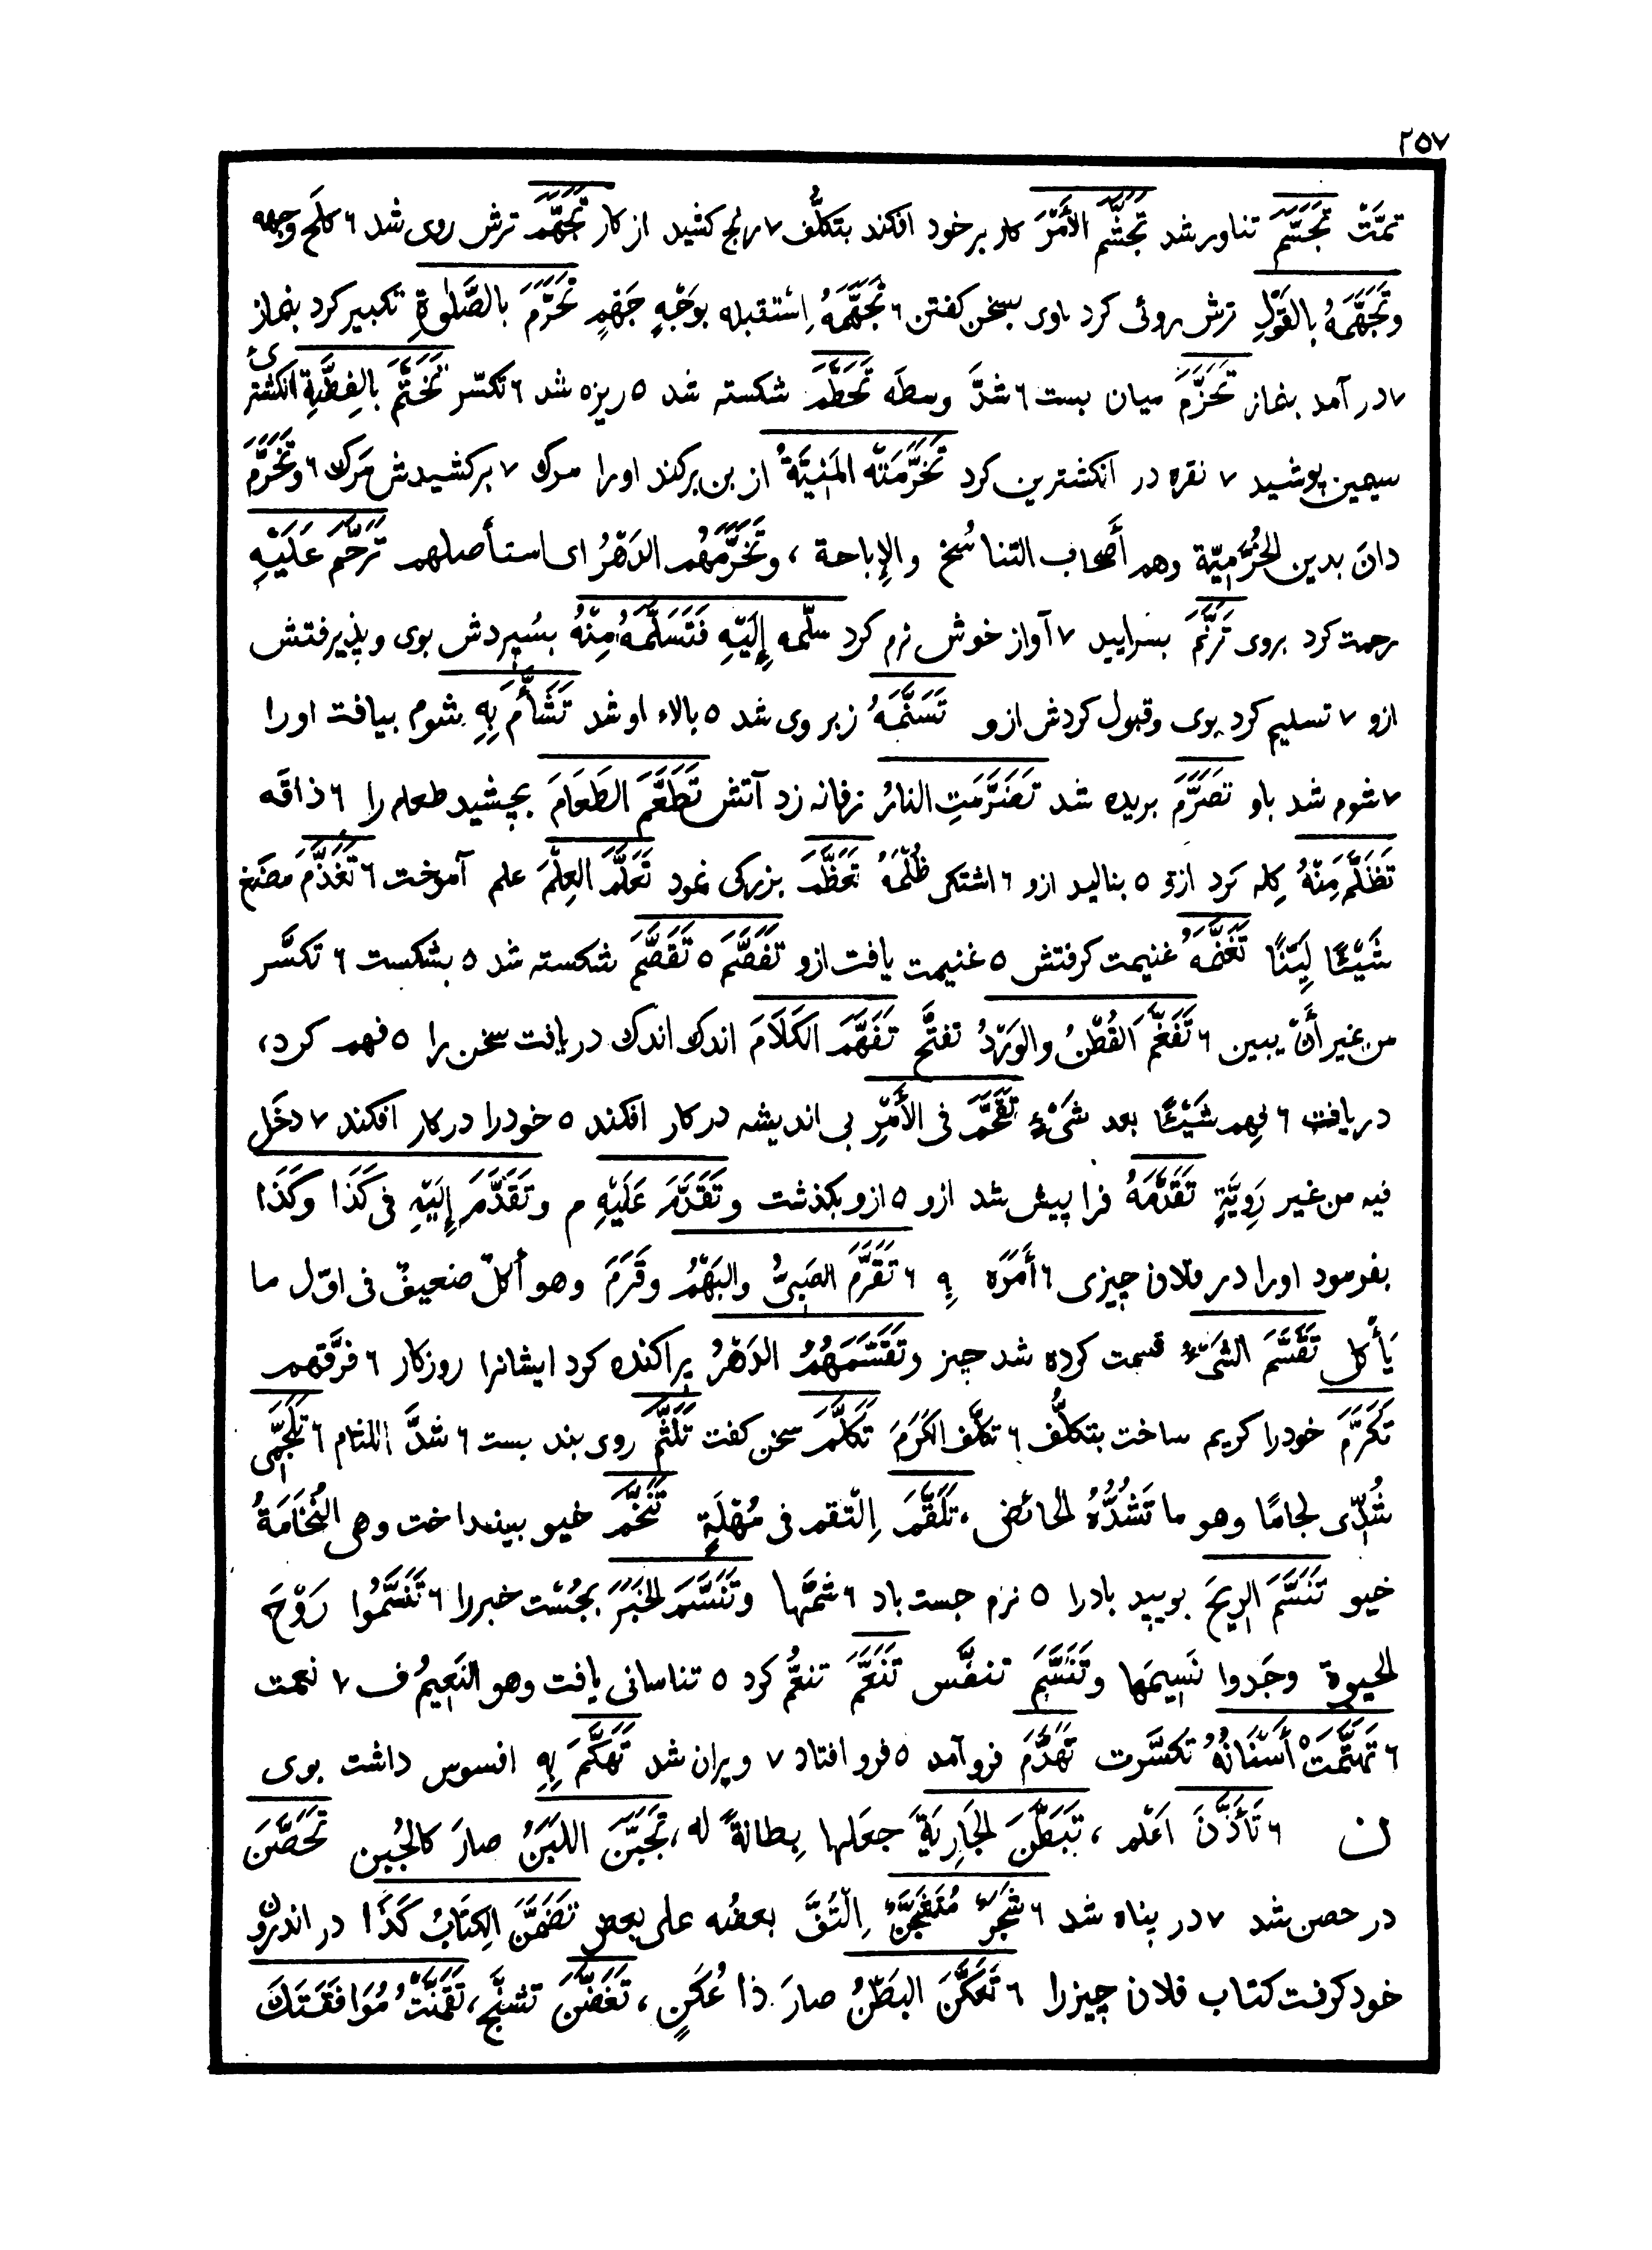 ٢٥٧
تمَّتْ تَجَسَّمَ تناور شد تَجَشَّمَ الأَمْرَ كار بر خود افكند بتكلُّف ٧ رنج كشيد از كار تَجَهَّمَ ترش روى شد ٦ كلَح وجهه
وتَجَهَّمَهُ بالقَوْلِ ترش روئى كرد باوى بسخن كفتن ٦ تَجَهَّمَهُ اِسْتقبله بوَجْهٍ جَهْمٍ تَحَرَّمَ بالصَّلٰوةِ تكبير كرد بنماز
٧ در آمد بنماز تَحَزَّمَ ميان بست ٦ شدَّ وسطَه تَحَطَّمَ شكسته شد ٥ ريزه شد ٦ تكسّر تَخَتَّمَ بالفِضَّةِ انكشترئ
سيمين پوشيد ٧ نقره در انكشترين كرد تَخَرَّمَتْه المَنِيَّةُ از بن بركند اورا مرك ٧ بركشيدش مَرك ٦ وتَخَرَّمَ
دانَ بدين الخُرَّمِيّة وهم أَصحاب التناسُخ والإِباحة ، وتَخَرَّمَهُم الدَهْرُ اى استأصلهم تَرَحَّمَ عَلَيْهِ
رحمت كرد بروى تَرَنَّمَ بسراييد ٧ آواز خوش نرم كرد سلّمه إِلَيْهِ فَتَسَلَّمَهُ مِنْهُ بسُپردش بوى وپذيرفتش
ازو ٧ تسليم كرد بوى وقبول كردش ازو تَسَنَّمَهُ زبر وى شد ٥ بالاء او شد تَشَأَّمَ بِهِ شوم بيافت اورا
٧ شوم شد باو تَصَرَّمَ بريده شد تَضَرَّمَتِ النارُ زفانه زد آتش تَطَعَّمَ الطَعَامَ بچشيد طعام را ٦ ذاقَه
تَظَلَّمَ مِنْهُ كِله كرد ازو ٥ بناليد ازو ٦ اشتكى ظُلْمَهُ تَعَظَّمَ بزركى نمود تَعَلَّمَ العِلْمَ علم آموخت ٦ تَغَذَّمَ مضَغ
شَيْئًا لَيِّنًا تَغَنَّمَهُ غنيمت كرفتش ٥ غنيمت يافت ازو تَفَصَّمَ ٥ تَقَصَّمَ شكسته شد ٥ بشكست ٦ تكسَّر
من غير أَنْ يبين ٦ تَفَغَّمَ القُطْنُ والوَرْدُ تفتَّح تَفَهَّمَ الكَلَامَ اندك اندك دريافت سخن را ٥ فهم كرد ،
دريافت ٦ فهِم شَيْئًا بعد شَىْءٍ تَقَحَّمَ فى الأَمْرِ بى انديشه در كار افكند ٥ خودرا در كار افكند ٧ دخَل
فيه من غير رَوِيَّةٍ تَقَدَّمَهُ فرا پيش شد ازو ٥ ازو بكذشت وتَقَدَّمَ عَلَيْهِ م وتَقَدَّمَ إِلَيْهِ فى كَذَا وكَذَا
بفرمود اورا در فلان چيزى ٦ أَمَرَه بِه ٦ تَقَرَّمَ الصَبِىُّ والبَهْمُ وقَرَمَ وهو أَكلٌ ضعيفٌ فى اوّل ما
يَأْكل تَقَسَّمَ الشَىْءُ قسمت كرده شد چيز وتَقَسَّمَهُمُ الدَهْرُ پراكنده كرد ايشانرا روزكار ٦ فرَّقهم
تَكَرَّمَ خودرا كريم ساخت بتكلُّف ٦ تكلَّف الكَرَمَ تَكَلَّمَ سخن كفت تَلَثَّمَ روى بند بست ٦ شدَّ اللثام ٦ تَلَجَّمِى
شُدِّى لجامًا وهو ما تَشُدُّهُ الحائض ، تَلَقَّمَ اِلْتقم فى مُهْلَةٍ تَنَخَّمَ خيو بينداخت وهى النُخَامَةُ
خيو تَنَسَّمَ الرِيحَ بوييد بادرا ٥ نرم جست باد ٦ شمَّها وتَنَسَّمَ الخَبَرَ بجُسْت خبررا ٦ تَنَسَّمُوا رَوْحَ
الحيوة وجَدوا نَسِيمَها وتَنَسَّمَ تنفَّس تَنَعَّمَ تنعُّم كرد ٥ تناسانى يافت وهو النَعِيمُ ف ٧ نعمت
٦ تَهَتَّمَتْ أَسْنَانُهُ تكسَّرت تَهَدَّمَ فرو آمد ٥ فرو افتاد ٧ ويران شد تَهَكَّمَ بِهِ افسوس داشت بوى
ن ٦ تَأَذَّنَ اَعْلم ، تَبَطَّنَ الجَارِيَةَ جعَلها بِطانةً له ، تَجَبَّنَ اللَبَنُ صارَ كالجُبن تَحَصَّنَ
در حصن شد ٧ در پناه شد ٦ شَجَرٌ مُتَغَجِّنٌ اِلْتفَّ بعضُه على بعض تَضَمَّنَ الكِتَابُ كَذَا در اندرون
خود كرفت كتاب فلان چيزرا ٦ تَعَكَّنَ البَطْنُ صارَ ذا عُكَنٍ ، تَغَضَّنَ تشنَّج ، تَقَمَّنْتُ مُوَافَقَتَكَ